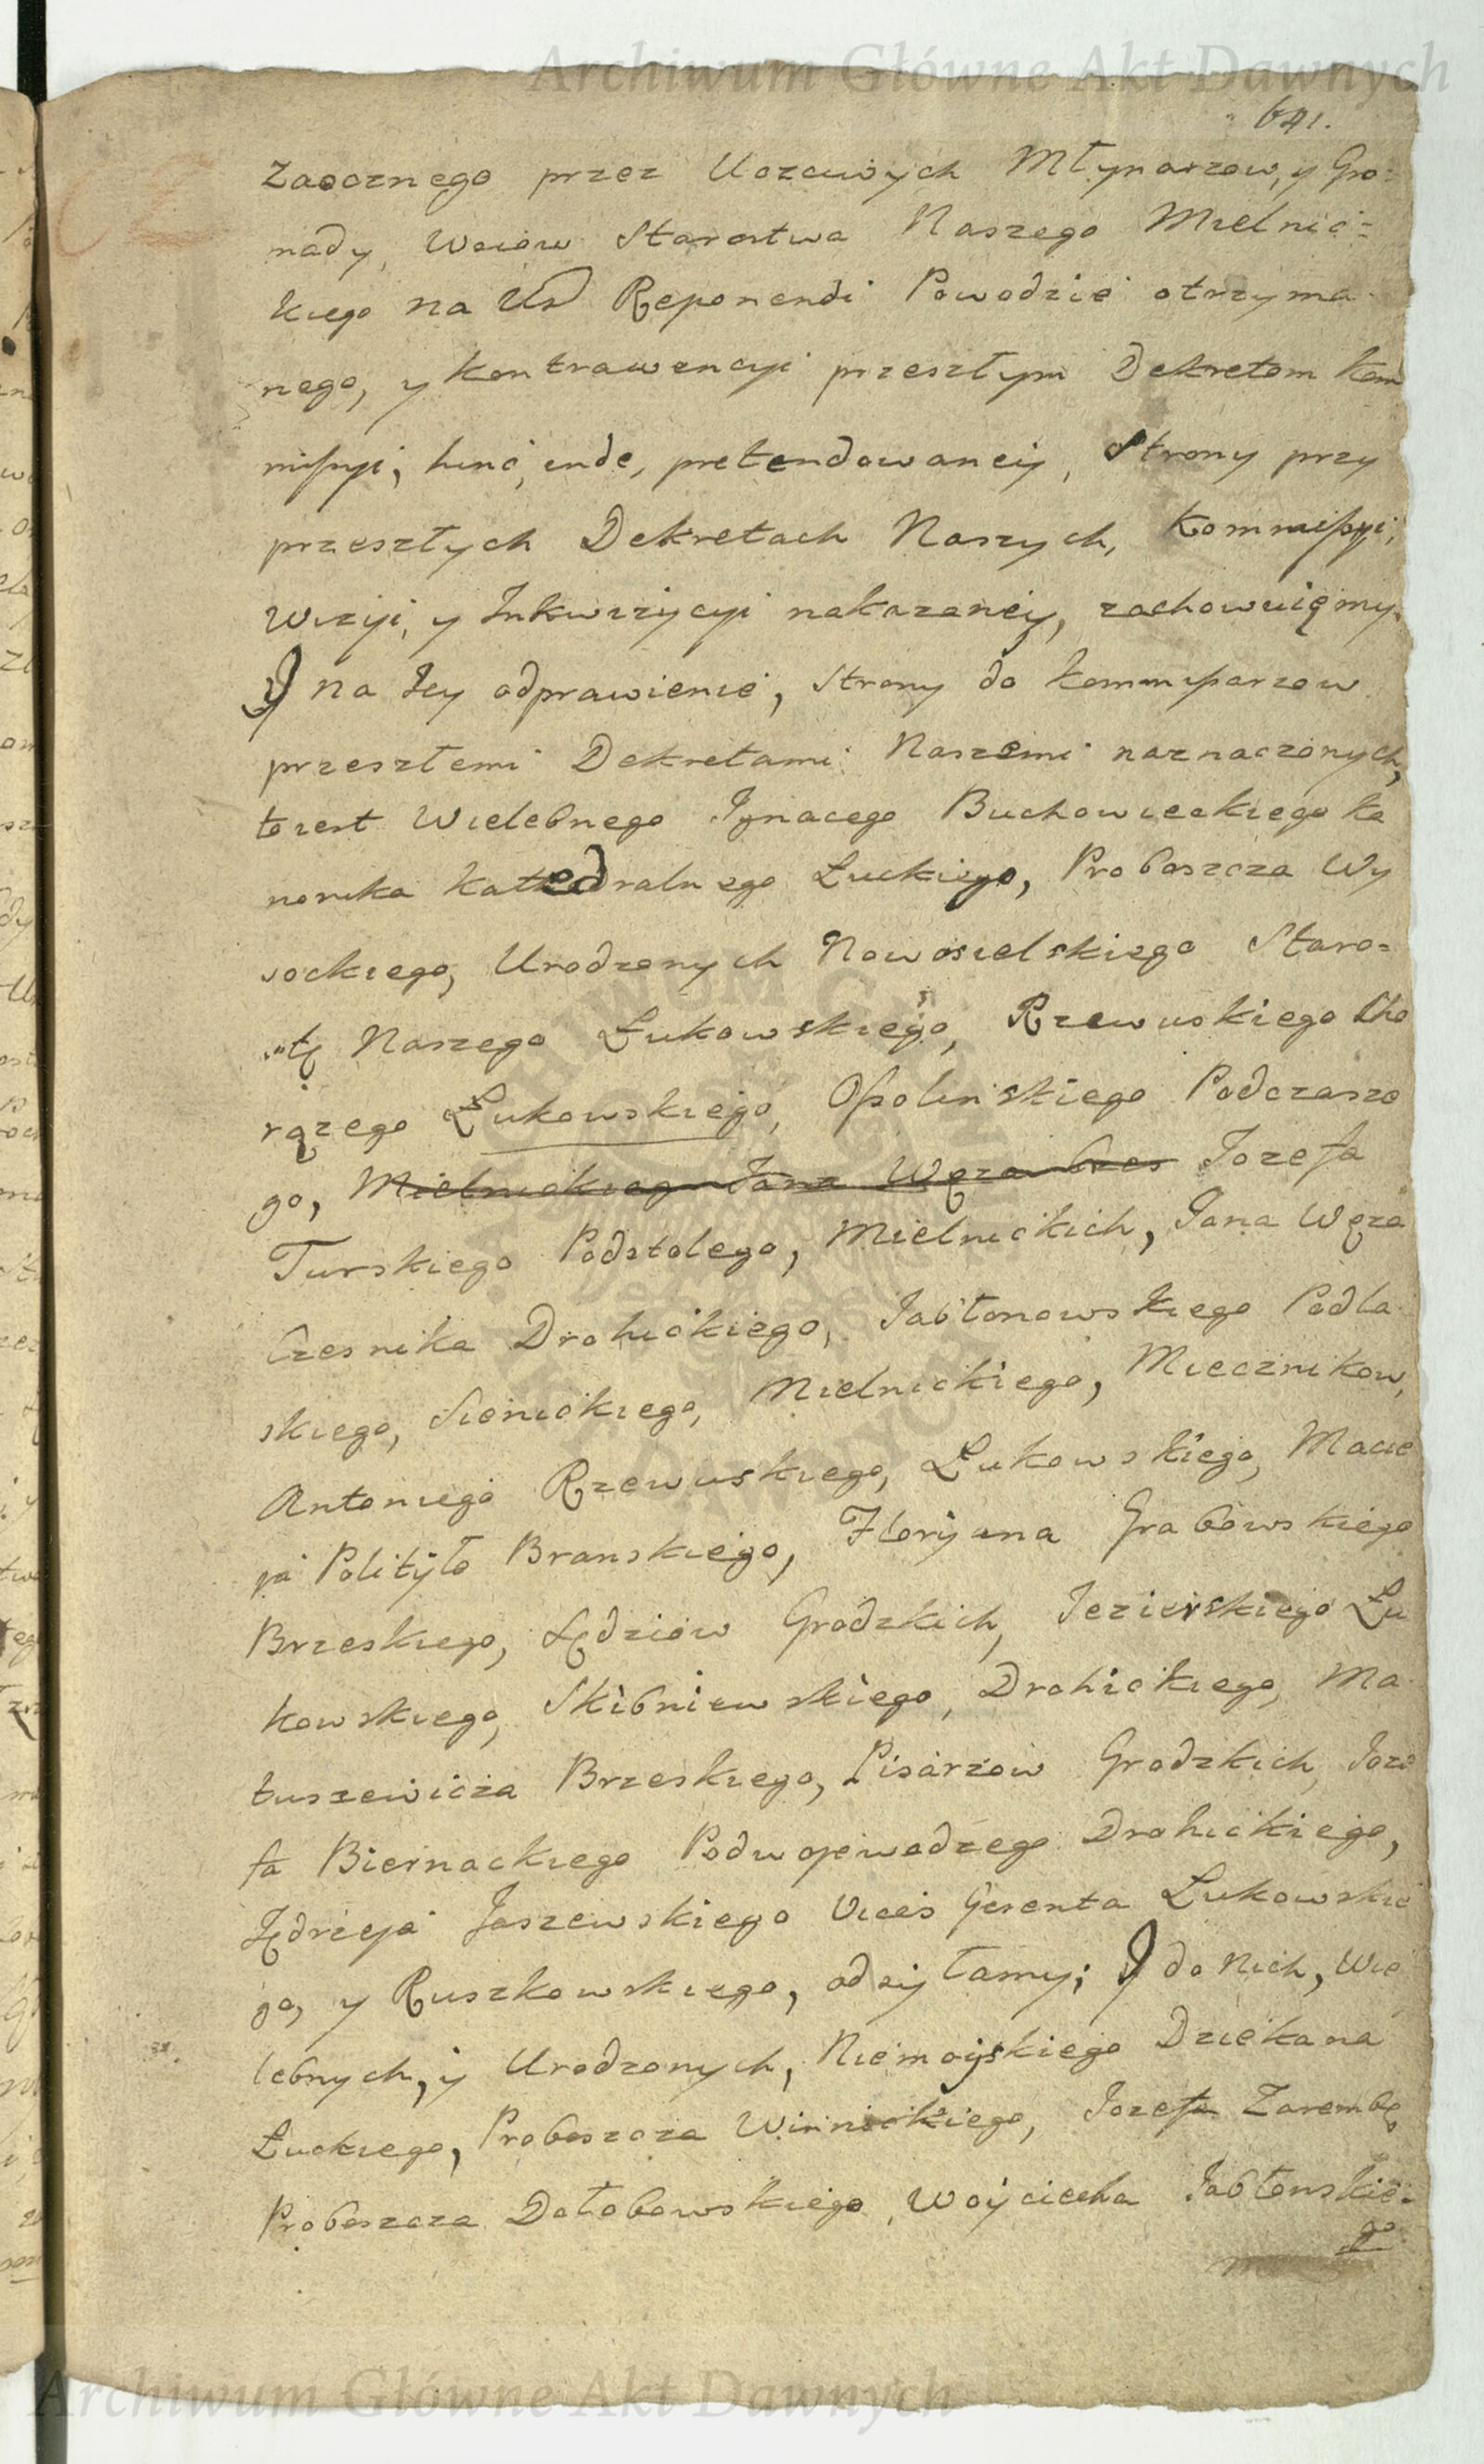 Archiwum Główne Akt Dawnych
641.
Zaocznego przez Uczciwych Młynarzow, y Gro=
mady, Wsiow Starostwa Naszego Mielnic=
kiego na Reponendi Powodzie otrzyma
nego, y kontrawencyi przeszłym Dekretom Kom
missyi, hinc, inde, pretendowaney, Strony przy
przeszłych Dekretach Naszych, Kommissyi,
Wizyi, y Inkwizycyi nakazaney, zachowuięmy.
Y na Jey odprawienie, Strony do kommissarzow
przeszłemi Dekretami Naszemi naznaczonych,
to iest Wielebnego Ignacego Buchowieckiego Ka
nonika Kattedralnego Łuckiego, Proboszcza Wy
sockiego, Urodzonych Nowosielskiego Staro=
stę Naszego Łukowskiego, Rzewuskiego Cho
rązego Łukowskiego, Ossolinskiego Podczasze
go, Mielnickiego Jana Węza Czes Jozefa
Turskiego Podstolego, Mielnickich, Jana Węza
Czesnika Drohickiego, Jabłonowskiego Podla
skiego, Sienickiego, Mielnickiego, Miecznikow,
Antoniego Rzewuskiego, Łukowskiego, Macie
ja Polityło Branskiego, Floryana Grabowskiego
Brzeskiego, Sędziow Grodzkich, Jezierskiego Łu
kowskiego, Skibniewskiego, Drohickiego, Ma
tuszewicza Brzeskiego, Pisarzow Grodzkich, Joze
fa Biernackiego Podwojewodzego Drohickiego,
Jędrzeja Jaszewskiego Vices Gerenta Łukowskie
go, y Ruszkowskiego, odsyłamy; Y do Nich, Wie
lebnych, y Urodzonych, Niemoyskiego Dziekana
Łuckiego, Proboszcza Winnickiego, Jozefa Zarembę
Proboszcza Dołobowskiego, Woyciecha Jabłonskie=
go
Archiwum Główne Akt Dawnych